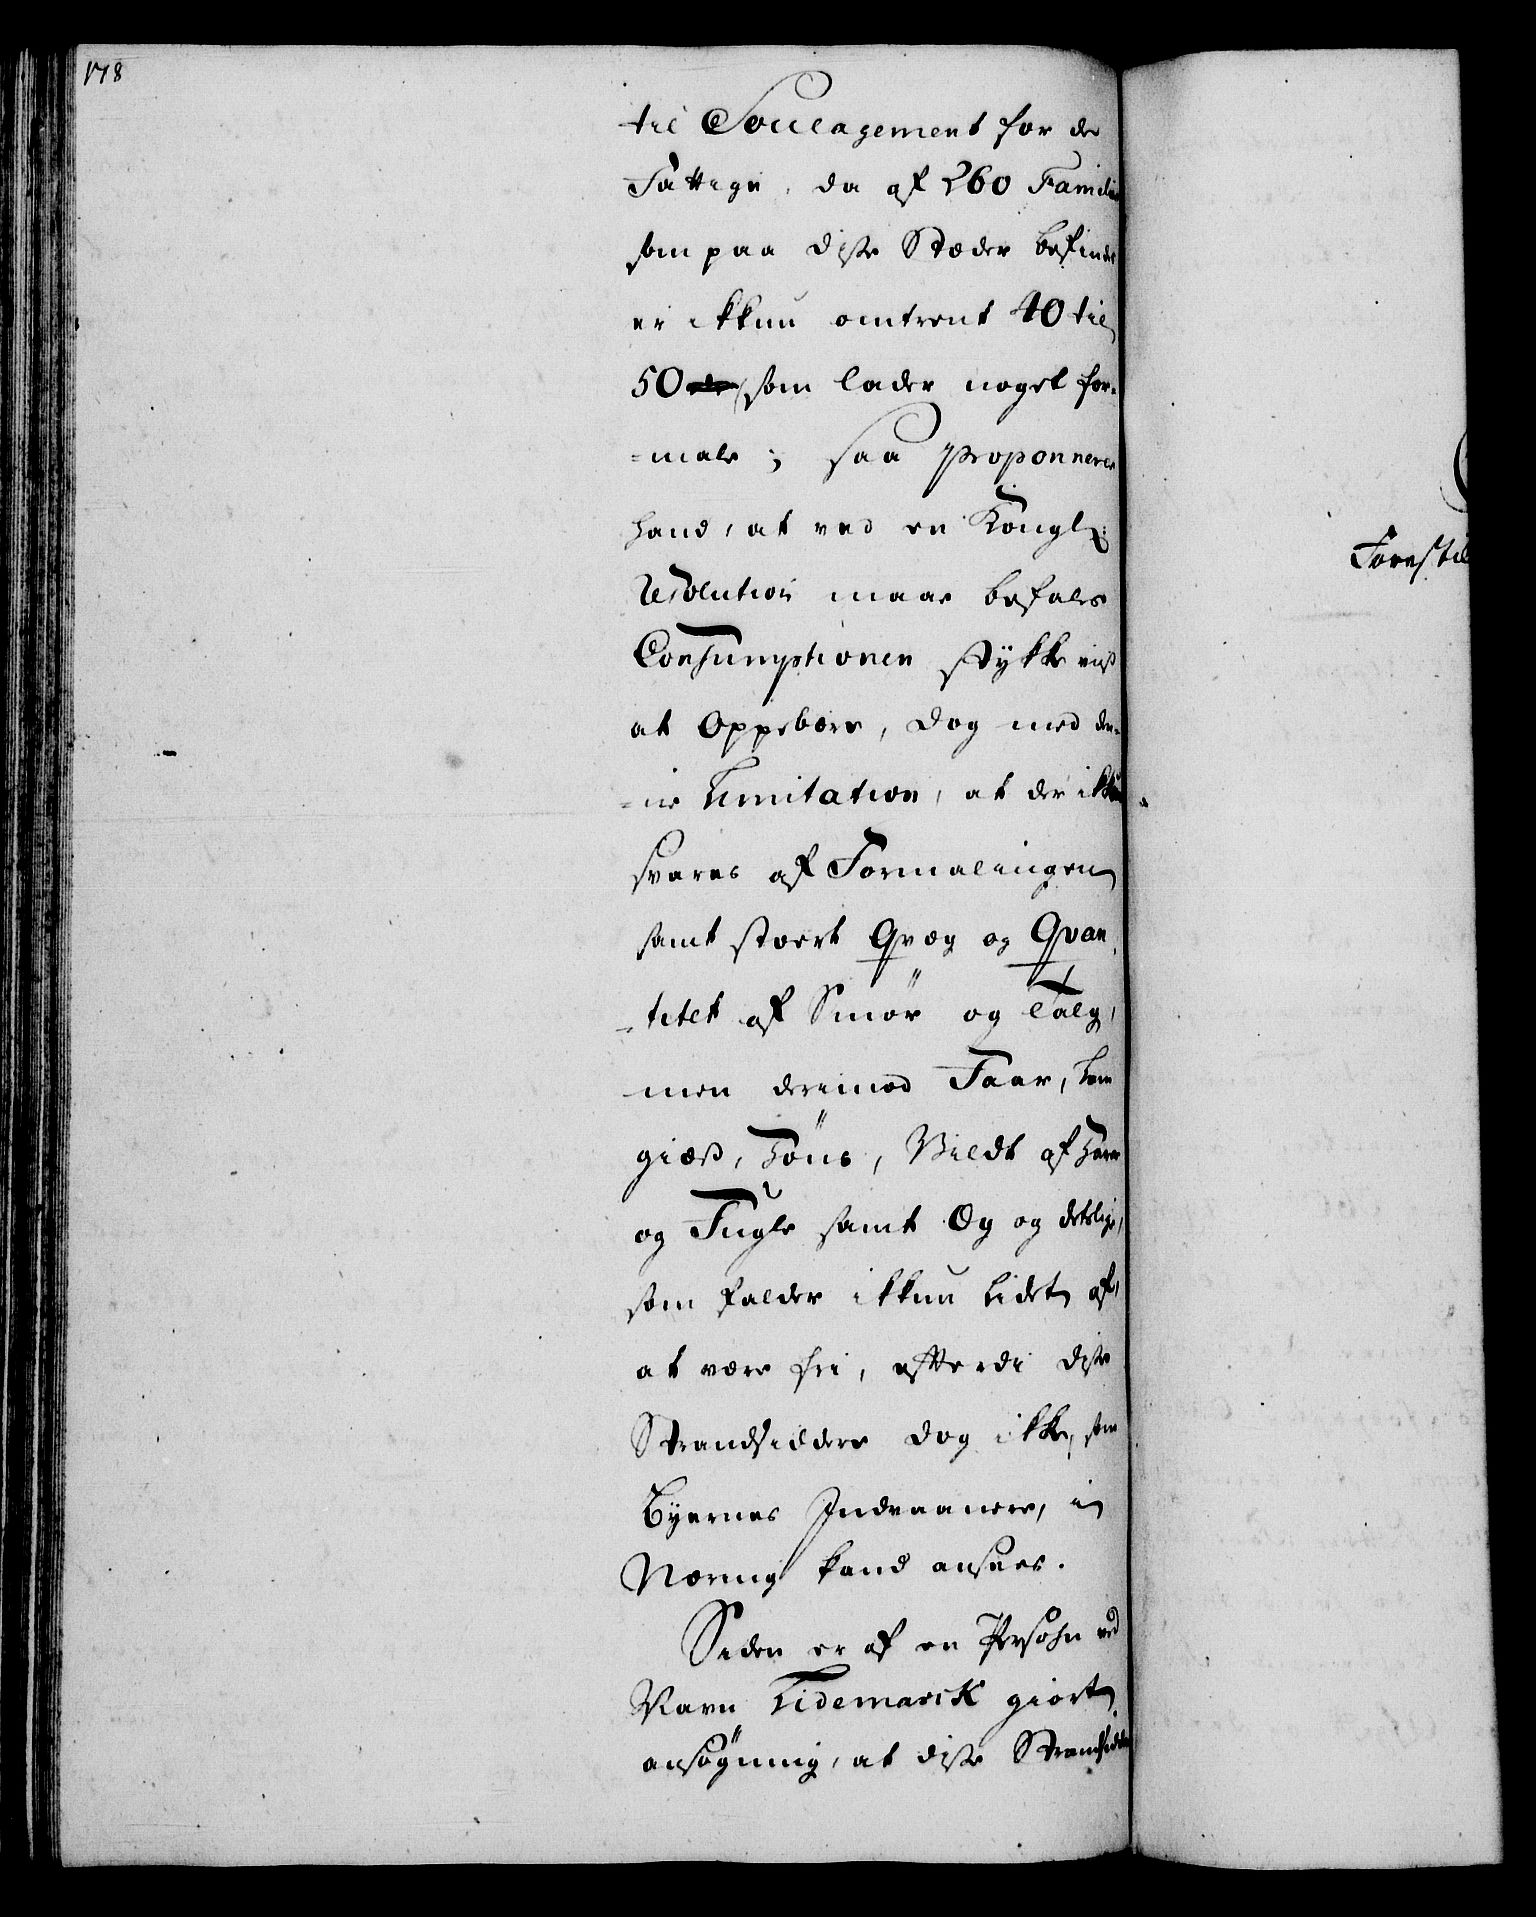 178
til Soulagement for de
Fattige, da af 260 Familier
som paa disse Stæder befindes
er ikkun omtrent 40 til
50 som lader noget for-
-male; saa proponnerer
hand, at ved en Kongl:
Resolution maae befales
Consumptionen stykkeviis
at Oppebære, dog med den-
-ne Limitation, at der ikkun
svares af Formalingen
samt stoert Qvæg og Qvan-
-titet af Smör og Talg,
men derimod Faar, Lam
giæs, Höns, Vildt af Harer
og Fugle samt Æg og deslige,
som falder ikkun lidet af,
at være fri, efterdi disse
Strandsiddere dog ikke, som
Byernes Indvaanere, i
Næring kand ansees.
Siden er af en Persohn ved
Navn Tidemarck giort
ansögning, at disse Strandsiddere
Forestil